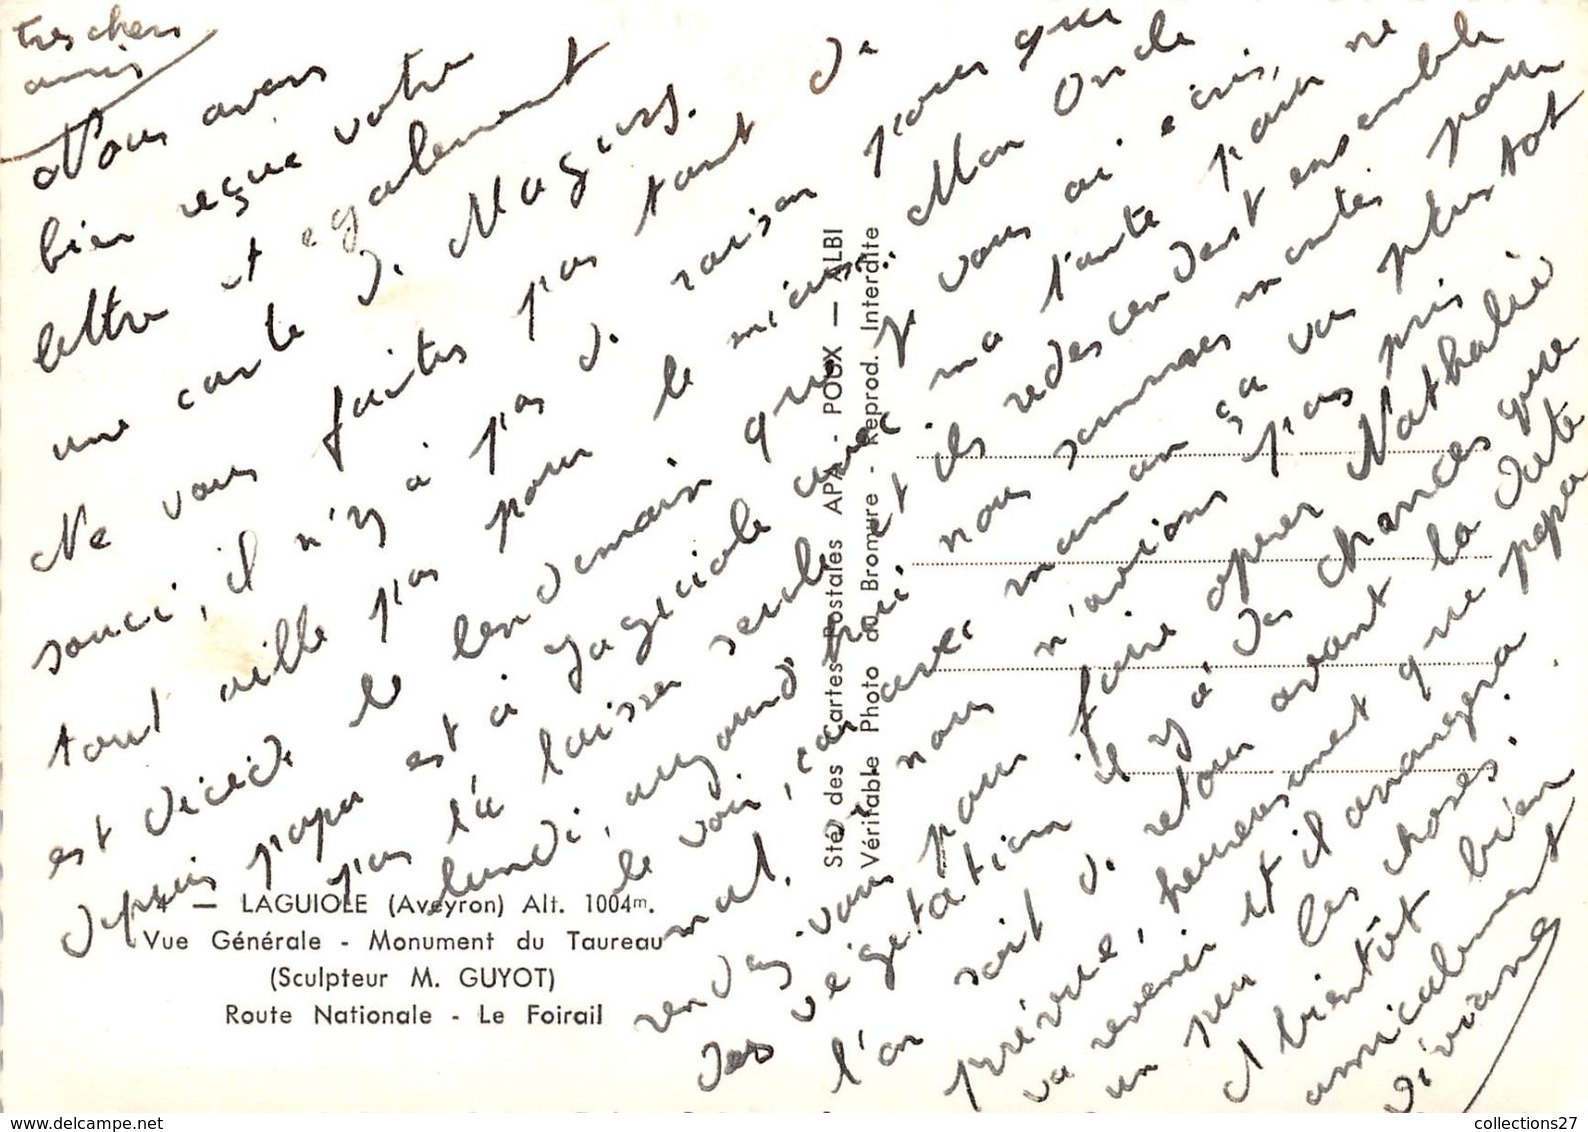 tres chers
amis
Nous avons
bien reçue votre
lettre et egalement
une carte de
Ne vous faites pas tant de
souci, il n'y a pas de raison pour que
tout aille pas pour le mieux. Mon Oncle
est décidé le lendemain que je vous ai écris,
depuis papa est à Lageiole avec ma tante pour ne
pas l'a laisser seule et ils redescendent ensemble
lundi, aujourd'hui nous sommes montés pour
le voir, car avec maman ça va plustot
mal. Si nous n'avions pas pris
rendez-vous pour faire operer Nathalie
des végétation il y a des chances que
l'on soit de retour avant la date
prévue, heureusement que papa
va revenir et il arrangera
un peu les choses.
A bientôt bien
amicalement
Viviane
4 — LAGUIOLE (Aveyron) Alt. 1004m.
Vue Générale - Monument du Taureau
(Sculpteur M. GUYOT)
Route Nationale - Le Foirail
Sté des Cartes Postales APA - POUX — ALBI
Véritable Photo au Bromure - Reprod. Interdite
collections27